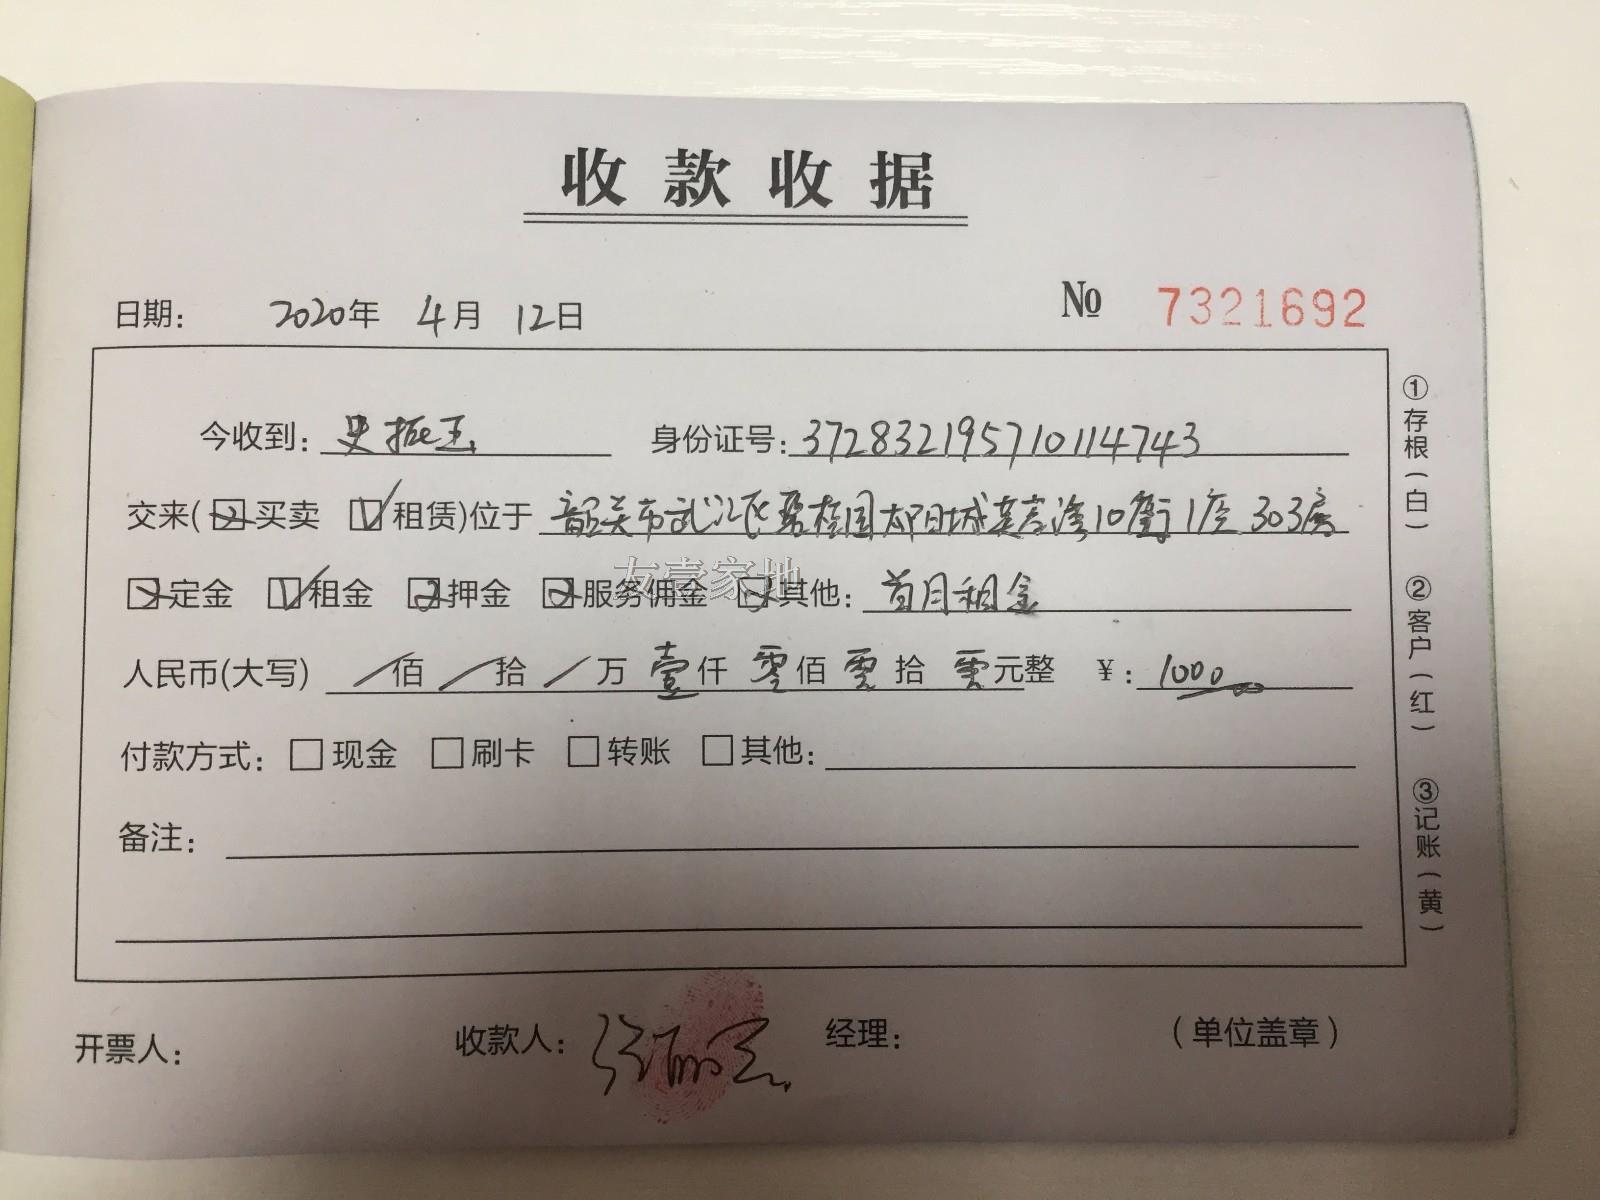 收款收据
日期： 2020年 4月 12日 № 7321692
今收到：史振玉 身份证号：372832195710114743
交来(☒买卖 ☑租赁)位于 韶关市武江区碧桂园太阳城芙蓉湾10街1座303房
☒定金 ☑租金 ☒押金 ☒服务佣金 ☒其他：首月租金
友壹家地
人民币(大写) /佰 /拾 /万 壹仟 零佰 零拾 零元整 ¥：1000
付款方式：□现金 □刷卡 □转账 □其他：
备注：
开票人： 收款人： 经理： （单位盖章）
①存根(白) ②客户(红) ③记账(黄)